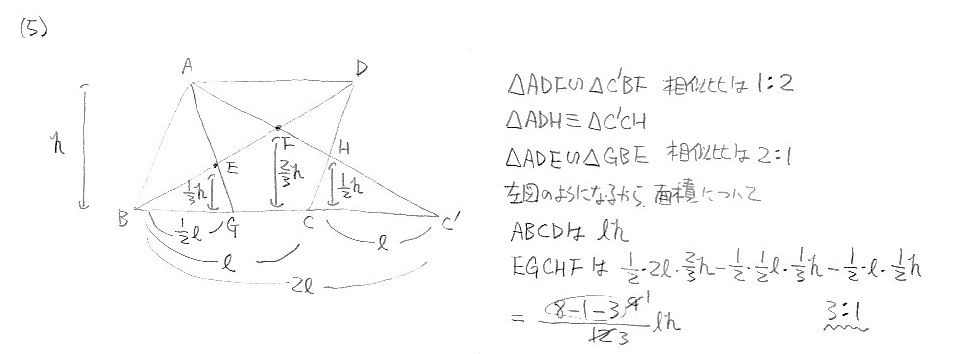 (5)
A D
h
F
H
E
1/3h 2/3h 1/2h
B G C C'
1/2l
l l
2l
△ADF∽△C'BF 相似比は1:2
△ADH≡△C'CH
△ADE∽△GBE 相似比は2:1
左図のようになるから、面積について
ABCDは lh
EGCHFは 1/2・2l・2/3h-1/2・1/2l・1/3h-1/2・l・1/2h
= (8-1-3 4 1)/(12 3) lh
3:1